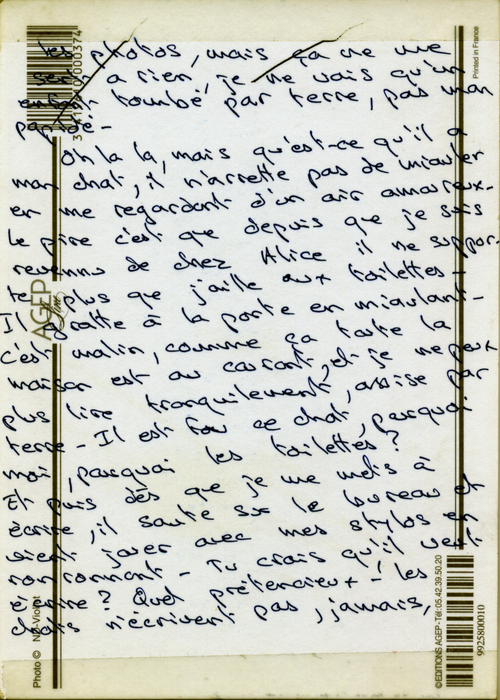 les photos, mais ça ne me
sert à rien, je ne vois qu'un
enfant tombé par terre, pas mon
pardé-
Oh la la, mais qu'est-ce qu'il a
mon chat, il n'arrette pas de miauler
en me regardant d'un air amoureux-
Le pire c'est que depuis que je suis
revennu de chez Alice il ne suppor-
te plus que j'aille aux toilettes-
Il gratte à la porte en miaulant-
c'est malin, comme ça toute la
maison est au courant, et je ne peux
plus lire tranquilement, assise par
terre- Il est fou ce chat, pourquoi
moi, pourquoi les toilettes?
Et puis dès que je me mets à
écrire, il saute sur le bureau et
vient jouer avec mes stylos en
ronronnant- Tu crois qu'il veut
écrire? Quel prétencieux-! les
chats n'écrivent pas, jamais,
Printed in France
AGEP
Photo ©
©EDITIONS AGEP-Tél:05.42.39.50.20
9925800010